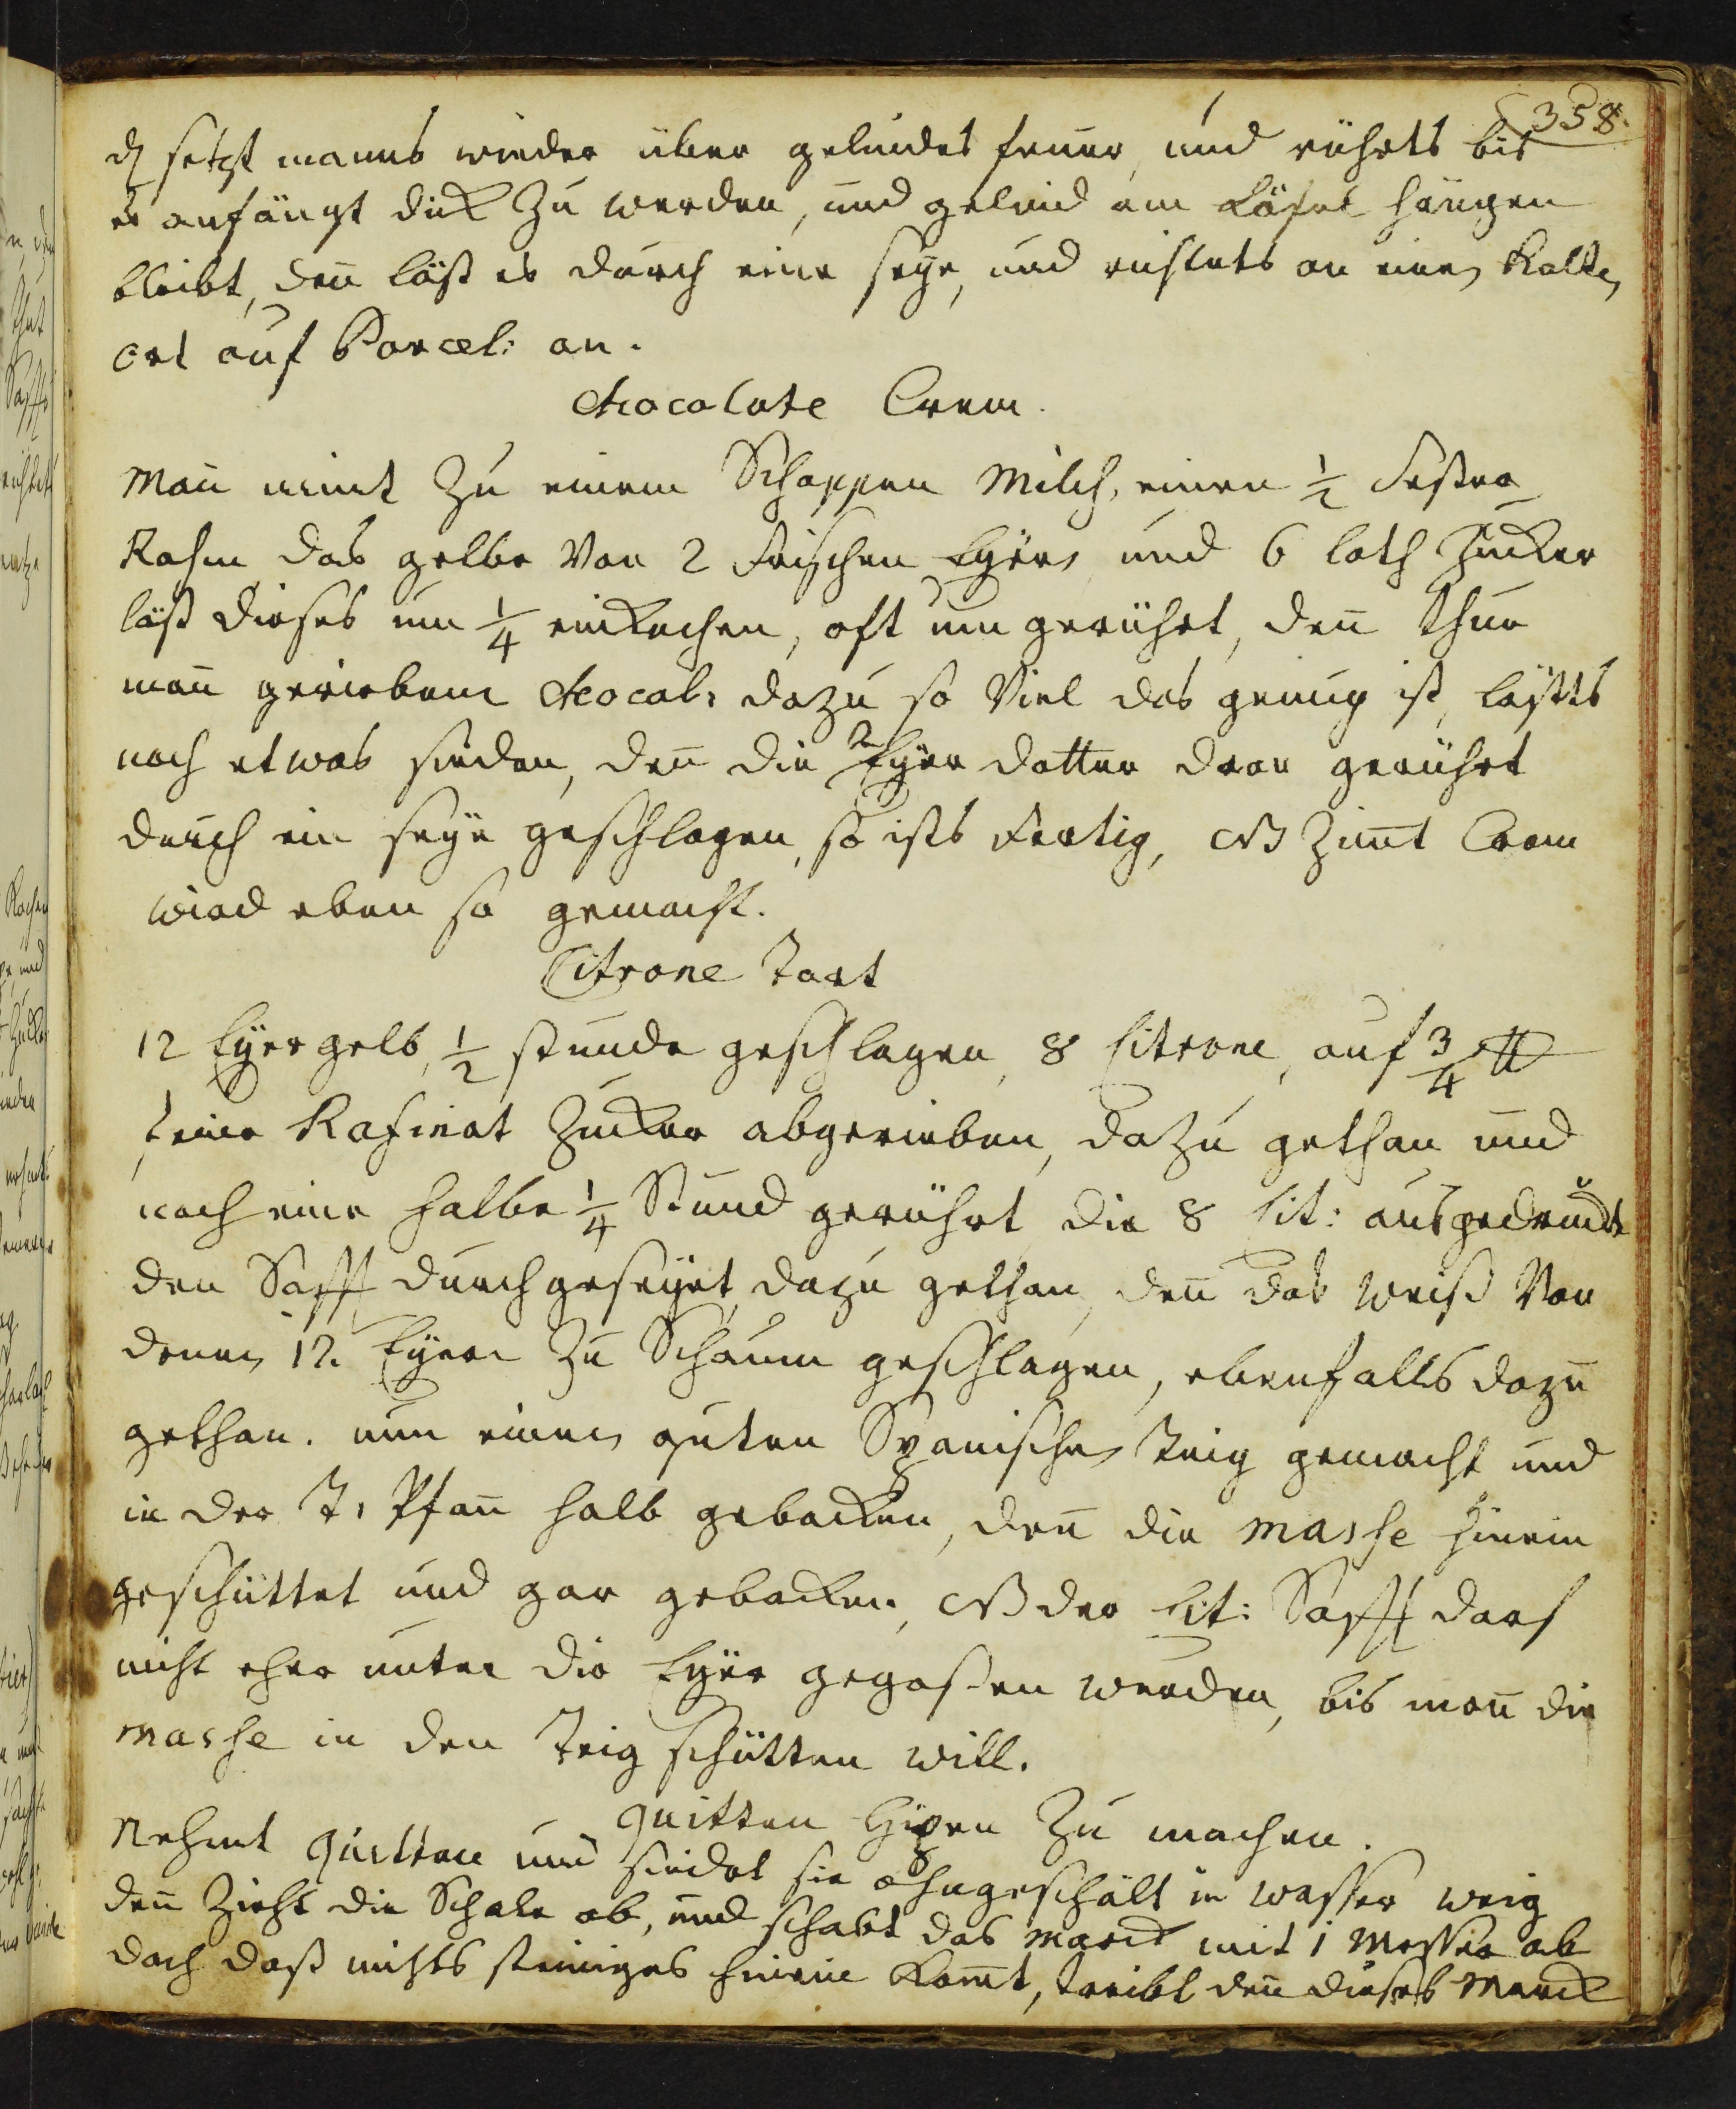 358.
dz setzt manns wieder über gelindes feuer, und rührts bis
es anfängt dick zu werden, und gelind am Löfel hangen
bleibt, deñ läst es durch eine seÿe, und richtets an einen Kalten
ort auf Porcel: an.
Chocolate Crem.
Mañ nimt zu einem Schoppen Milch, einen 1/2
Rahm das gelbe Von 2 frischen Eÿern und 6 loth Zucker
läst dieses um 1/4 einkochen, oft um gerührt, deñ thue
mañ geriebene Chocol: dazu so Viel das genug ist, lasts
noch etwas sieden, deñ die Eÿer dotter dran gerührt
durch ein seÿe geschlagen, so ists fertig, NB Zimt Crem
wird eben so gemacht.
Citrone Tart
12 Eÿergelb, 1/2 stunde geschlagen, 8 Citrone, auf 3/4 ℔
feine Rafinat Zucker abgerieben, dazu gethan und
noch eine halbe 1/4 Stund gerührt die 8 Cit: ausgedruckt
den Safft durchgeseÿet, dazu gethan, deñ das Weiß Von
denen 12. Eÿern zu Schaum geschlagen, ebenfalls dazu
gethan. nun einen guten Spanischen teig gemacht und
in der T: Pfañ halb gebacken, deñ die masse hinein
geschüttet und gar gebacken, NB der Cit: Safft darf
nicht eher unter die Eÿer gegossen werden, bis mañ die
masse in den Teig schütten will.
quitten Hipen zu machen.
Nehmt quitten und siedet sie ohngeschält in wasser weig
deñ zieht die Schale ab, und schabt das marck mit 1 Messer ab
doch daß nichts steiniges hinein komt, treibt deñ dieses Marck